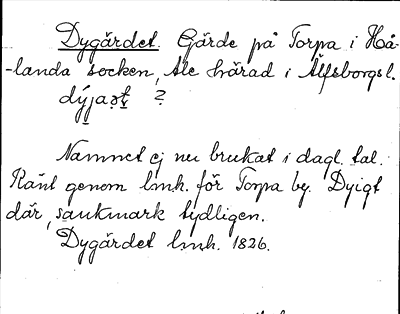 Dygärdet. Gärde på Torpa i Hå-
-landa socken, Ale härad i Älfsborgs l.
dýja ?
Namnet ej nu brukat i dagl. tal.
Känt genom lmh. för Torpa by. Dyigt
där, sankmark tydligen.
Dygärdet lmh. 1826.